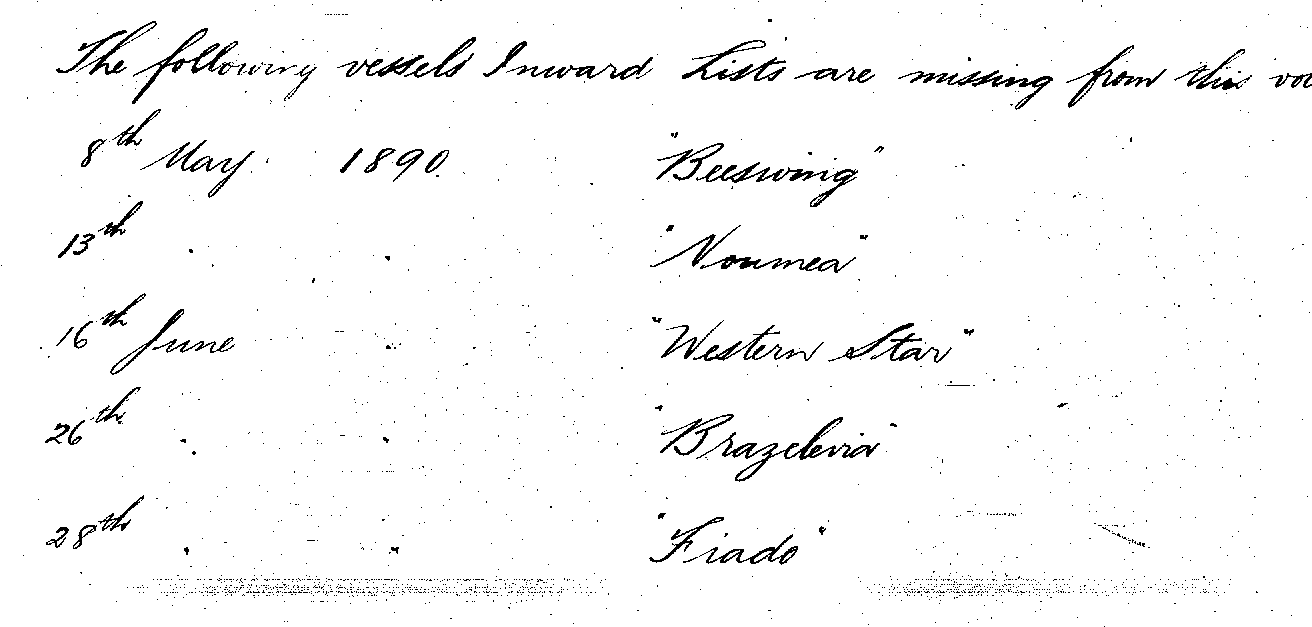 The following vessels Inward Lists are missing from this vol
8th May 1890. "Beeswing"
13th " " "Noumea"
16th June " "Western Star"
26th " " "Brazelevia"
28th " " "Fiado"